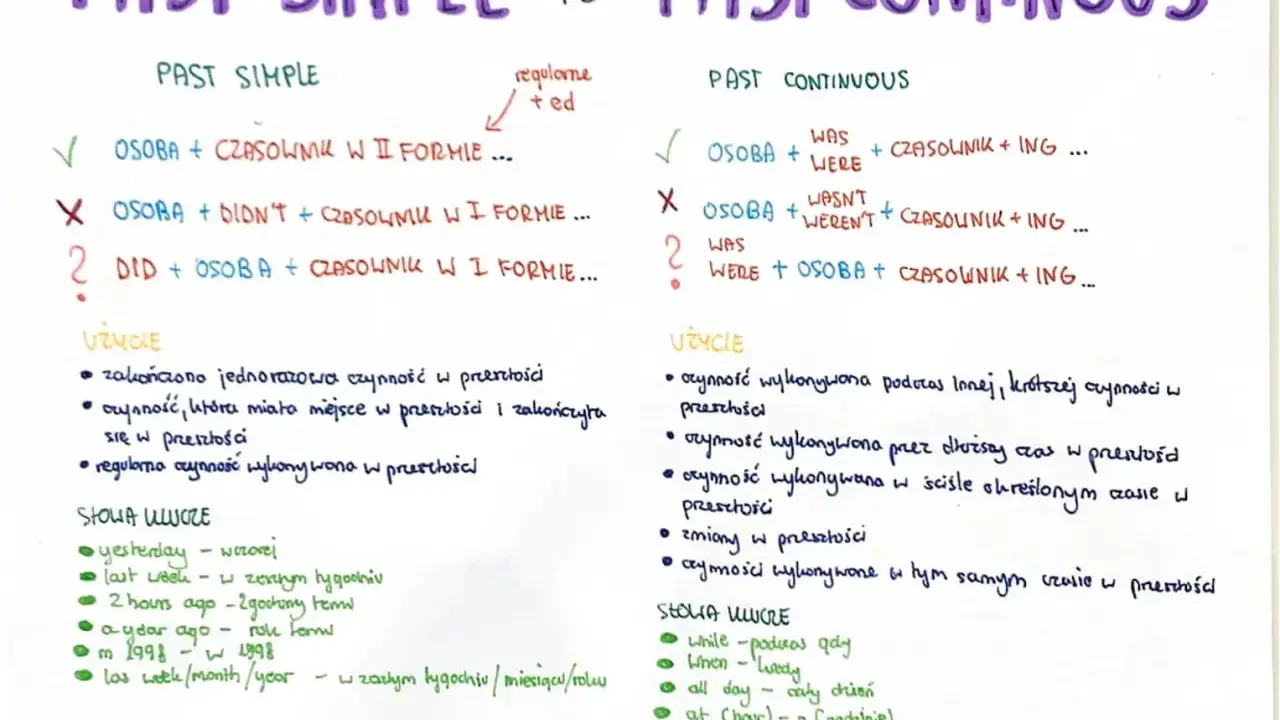 PAST SIMPLE vs PAST CONTINUOUS
PAST SIMPLE
regularne
+ ed
✓ OSOBA + CZASOWNIK W II FORMIE ...
X OSOBA + DIDN'T + CZASOWNIK W I FORMIE ...
? DID + OSOBA + CZASOWNIK W I FORMIE ...
UŻYCIE
• zakończona jednorazowa czynność w przeszłości
• czynność, która miała miejsce w przeszłości i zakończyła
się w przeszłości
• regularna czynność wykonywana w przeszłości
SŁOWA KLUCZE
• yesterday - wczoraj
• last week - w zeszłym tygodniu
• 2 hours ago - 2 godziny temu
• a year ago - rok temu
• in 1998 - w 1998
• las week/month/year - w zeszłym tygodniu/miesiącu/roku
PAST CONTINUOUS
✓ OSOBA + WAS
WERE + CZASOWNIK + ING ...
X OSOBA + WASN'T
WEREN'T + CZASOWNIK + ING ...
? WAS
WERE + OSOBA + CZASOWNIK + ING ...
UŻYCIE
• czynność wykonywana podczas innej, krótszej czynności w
przeszłości
• czynność wykonywana przez dłuższy czas w przeszłości
• czynność wykonywana w ściśle określonym czasie w
przeszłości
• zmiany w przeszłości
• czynności wykonywane w tym samym czasie w przeszłości
SŁOWA KLUCZE
• while - podczas gdy
• when - kiedy
• all day - cały dzień
• at (hour) - o (godzinie)